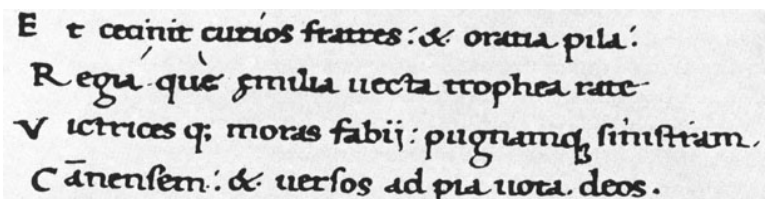 E t cecinit curios fratres: & oratia pila:
R egia que ęmilia uecta trophea rate
V ictrices q; moras fabij: pugnamq; sinistram.
C ānensem: & uersos ad pia uota. deos.